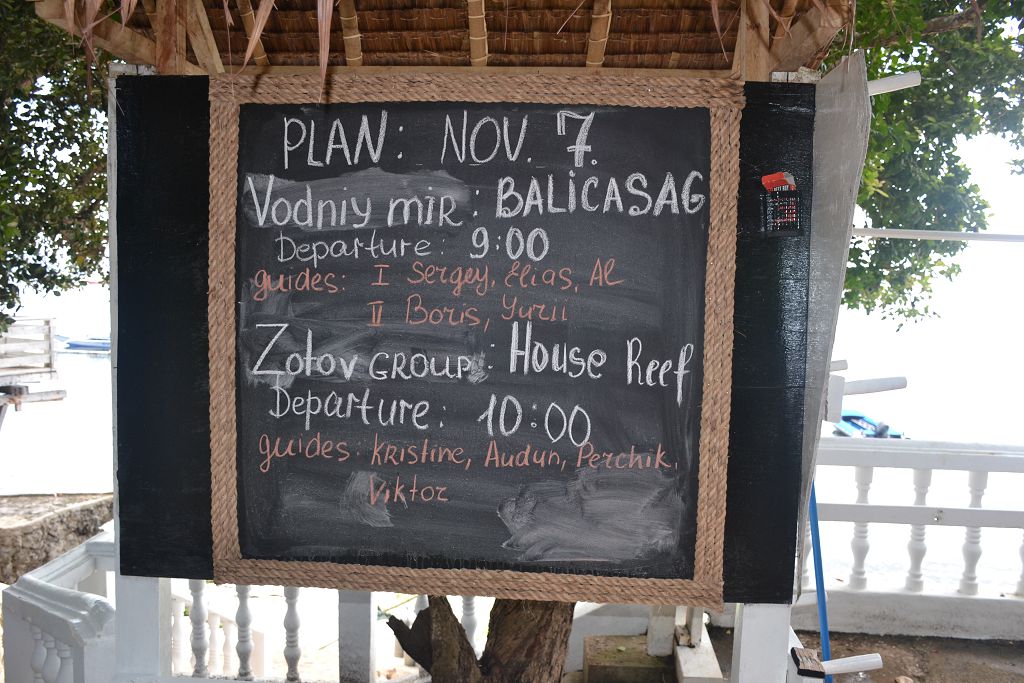 PLAN: NOV. 7.
Vodniy mir: BALICASAG
Departure: 9:00
guides: I Sergey, Elias, Al
II Boris, Yurii
Zotov GROUP: House Reef
Departure: 10:00
guides: Kristine, Audun, Perchik,
Viktor